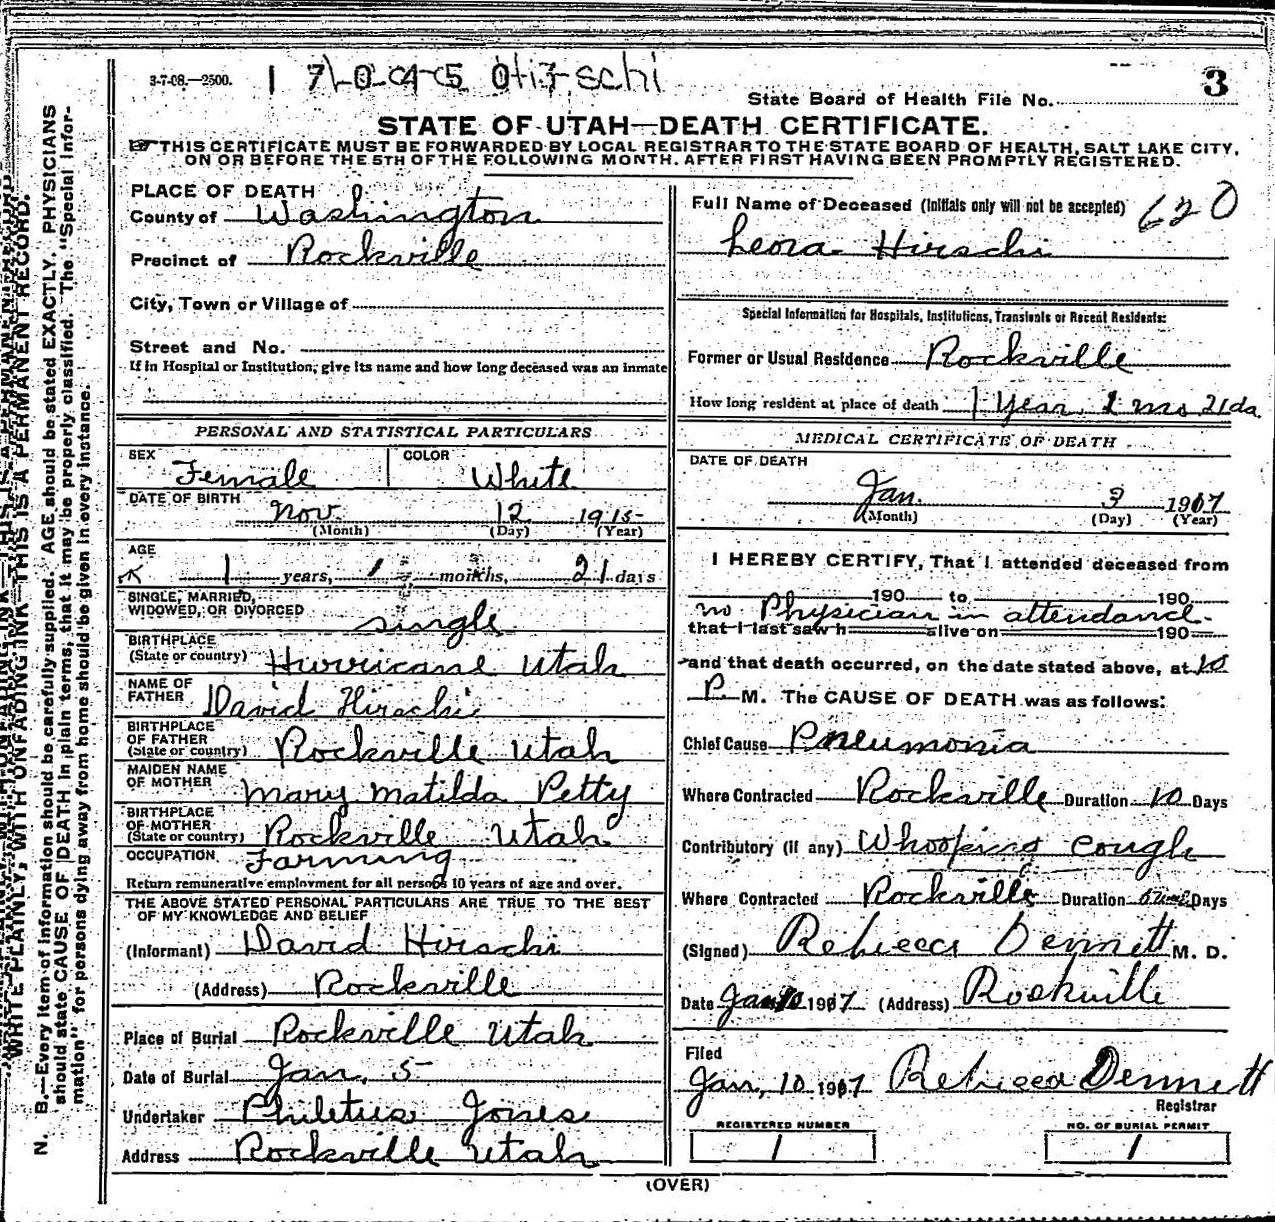 3-7-08.—2500.
State Board of Health File No. 3
STATE OF UTAH—DEATH CERTIFICATE.
THIS CERTIFICATE MUST BE FORWARDED BY LOCAL REGISTRAR TO THE STATE BOARD OF HEALTH, SALT LAKE CITY,
ON OR BEFORE THE 5TH OF THE FOLLOWING MONTH. AFTER FIRST HAVING BEEN PROMPTLY REGISTERED.
PLACE OF DEATH
County of Washington
Precinct of Rockville
City, Town or Village of
Street and No.
If in Hospital or Institution, give its name and how long deceased was an inmate
PERSONAL AND STATISTICAL PARTICULARS
SEX Female COLOR White
DATE OF BIRTH Nov 12 1915
(Month) (Day) (Year)
AGE
1 years, 1 months, 21 days
SINGLE, MARRIED,
WIDOWED, OR DIVORCED single
BIRTHPLACE
(State or country) Hurricane Utah
NAME OF
FATHER David Hirschi
BIRTHPLACE
OF FATHER
(State or country) Rockville Utah
MAIDEN NAME
OF MOTHER Mary Matilda Petty
BIRTHPLACE
OF MOTHER
(State or country) Rockville Utah
OCCUPATION Farming
Return remunerative employment for all persons 10 years of age and over.
THE ABOVE STATED PERSONAL PARTICULARS ARE TRUE TO THE BEST
OF MY KNOWLEDGE AND BELIEF
(Informant) David Hirschi
(Address) Rockville
Place of Burial Rockville Utah
Date of Burial Jan. 5
Undertaker Philetus Jones
Address Rockville Utah
Full Name of Deceased (Initials only will not be accepted) 620
Leora Hirschi
Special Information for Hospitals, Institutions, Transients or Recent Residents:
Former or Usual Residence Rockville
How long resident at place of death 1 Year, 2 mo 21 da.
MEDICAL CERTIFICATE OF DEATH
DATE OF DEATH
Jan. 3 1917
(Month) (Day) (Year)
I HEREBY CERTIFY, That I attended deceased from
190 to 190
no Physician in attendance.
that I last saw h alive on 190
and that death occurred, on the date stated above, at 10
P M. The CAUSE OF DEATH was as follows:
Chief Cause Pneumonia
Where Contracted Rockville Duration 10 Days
Contributory (if any) Whooping Cough
Where Contracted Rockville Duration Days
(Signed) Rebecca Dennett M. D.
Date Jan 10 1917 (Address) Rockville
Filed
Jan, 10 1917 Rebecca Dennett
Registrar
REGISTERED NUMBER
1
NO. OF BURIAL PERMIT
1
(OVER)
WRITE PLAINLY, WITH UNFADING INK—THIS IS A PERMANENT RECORD.
N. B.—Every item of information should be carefully supplied. AGE should be stated EXACTLY. PHYSICIANS
should state CAUSE OF DEATH in plain terms, that it may be properly classified. The "Special Infor-
mation" for persons dying away from home should be given in every instance.